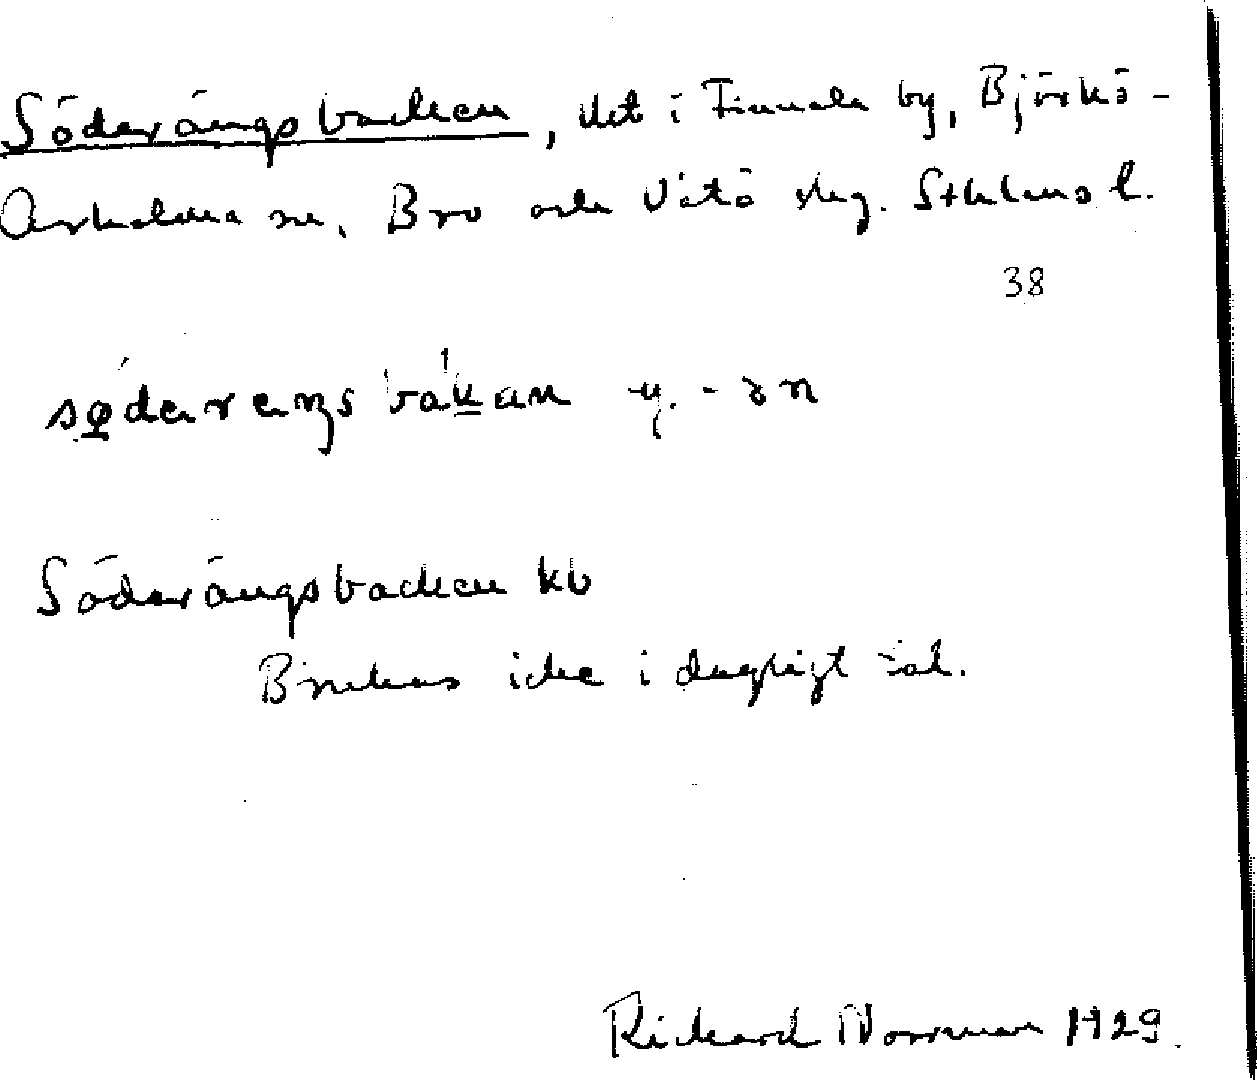 Söderängsbacken, slåt i Finnala by, Björkö-
Arholma sn, Bro och Vätö skg. Sthlms l.
38
södarengsbakan y. -ən
Söderängsbacken kb
Brukas icke i dagligt tal.
Richard Norrman 1929.